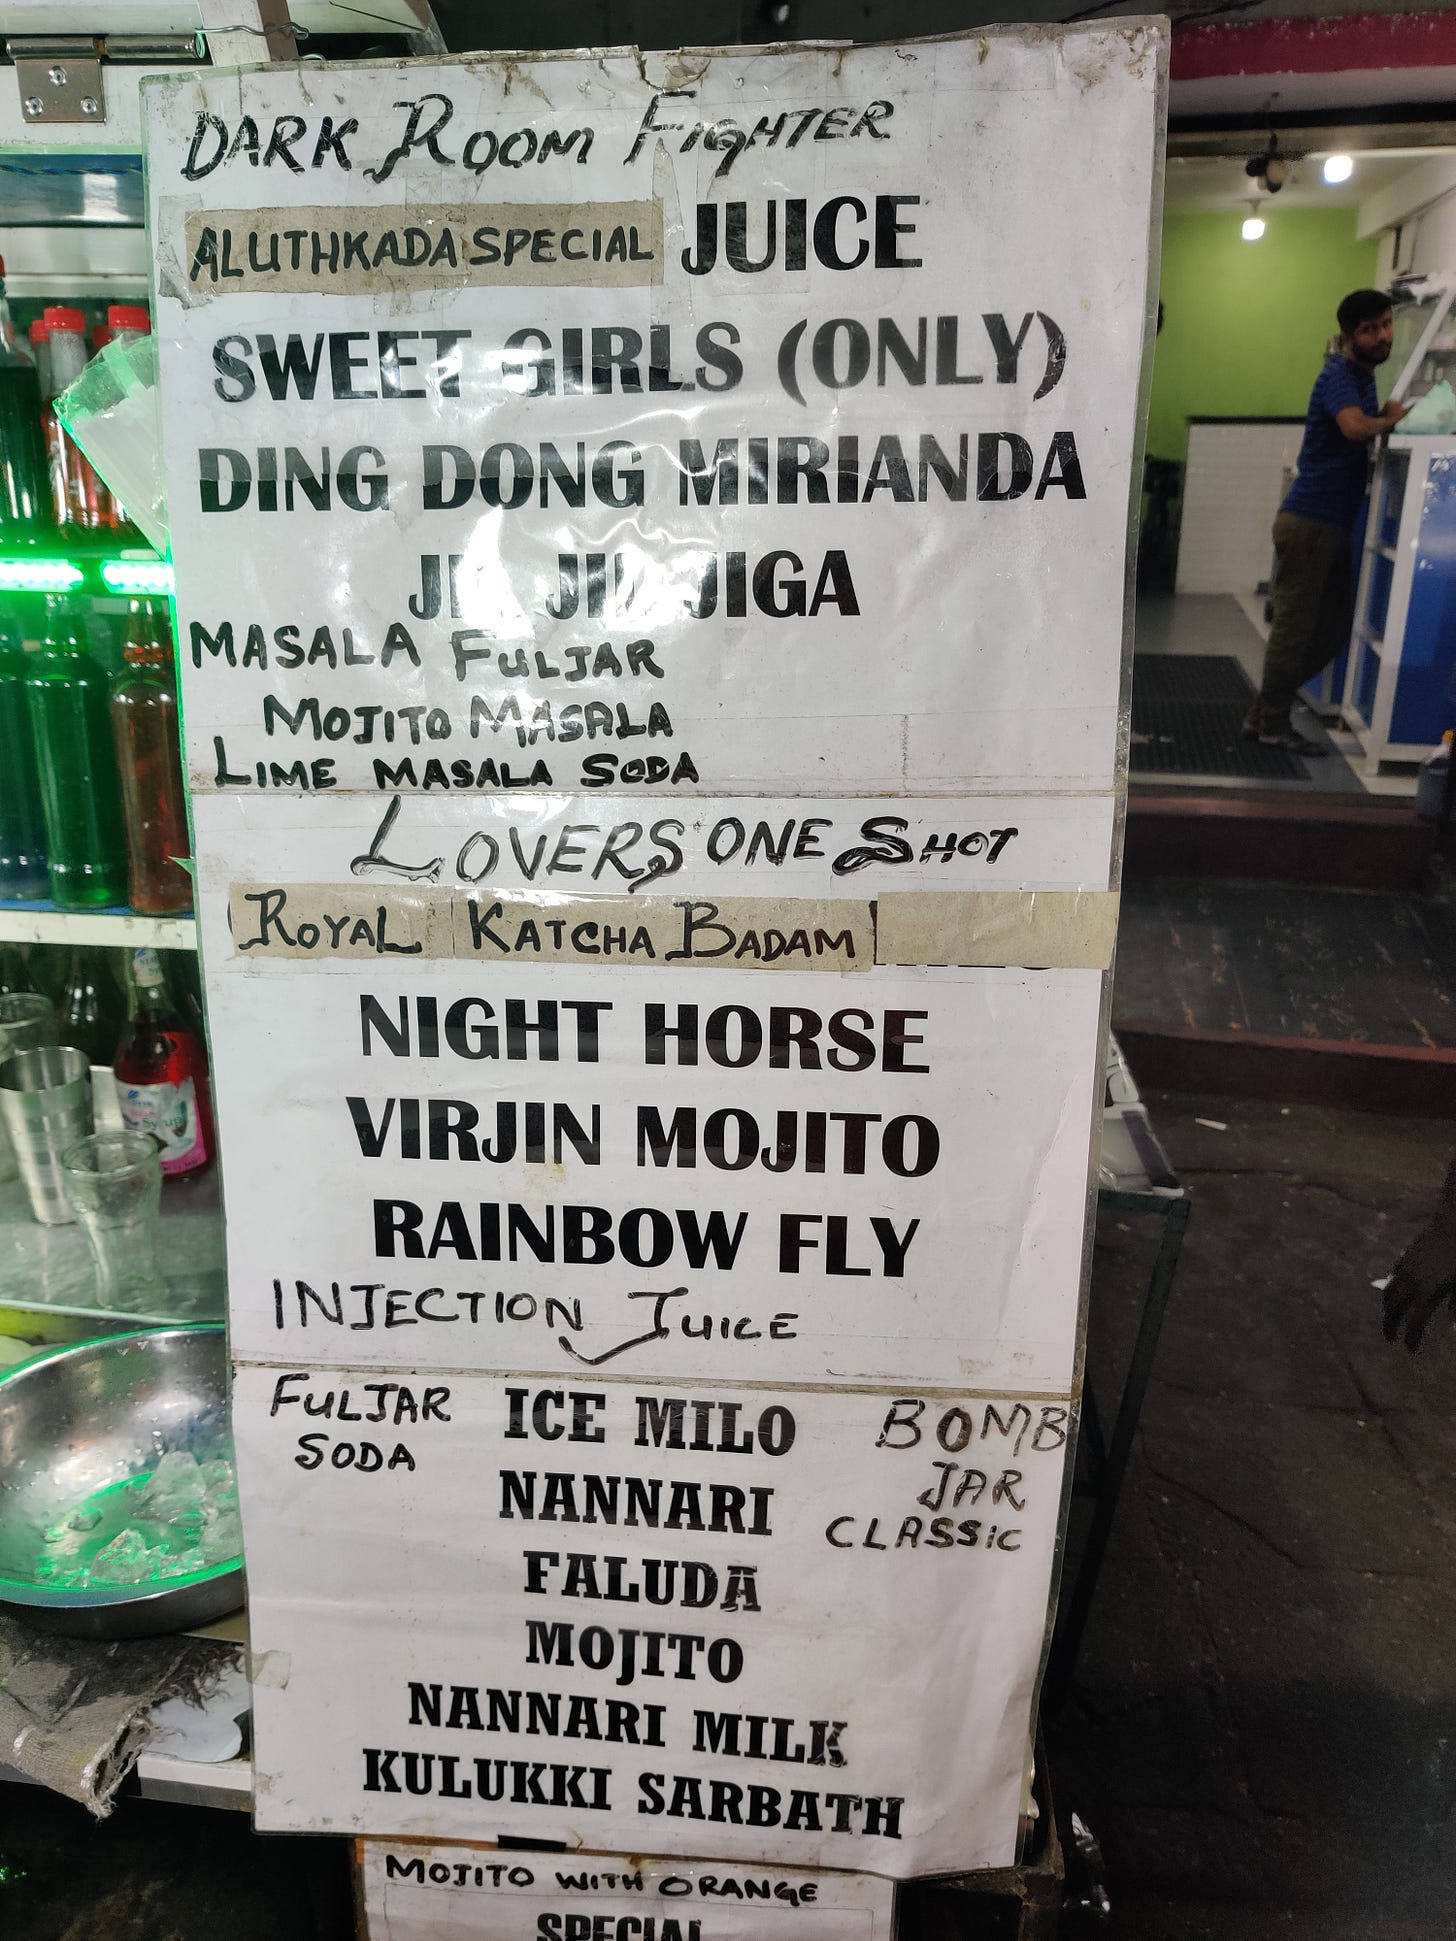 DARK ROOM FIGHTER
ALUTHKADA SPECIAL JUICE
SWEET GIRLS (ONLY)
DING DONG MIRIANDA
JIGA
MASALA FULJAR
MOJITO MASALA
LIME MASALA SODA
LOVERS ONE SHOT
ROYAL KATCHA BADAM
NIGHT HORSE
VIRJIN MOJITO
RAINBOW FLY
INJECTION JUICE
FULJAR
SODA
ICE MILO
BOMB
JAR
CLASSIC
NANNARI
FALUDA
MOJITO
NANNARI MILK
KULUKKI SARBATH
MOJITO WITH ORANGE
SPECIAL